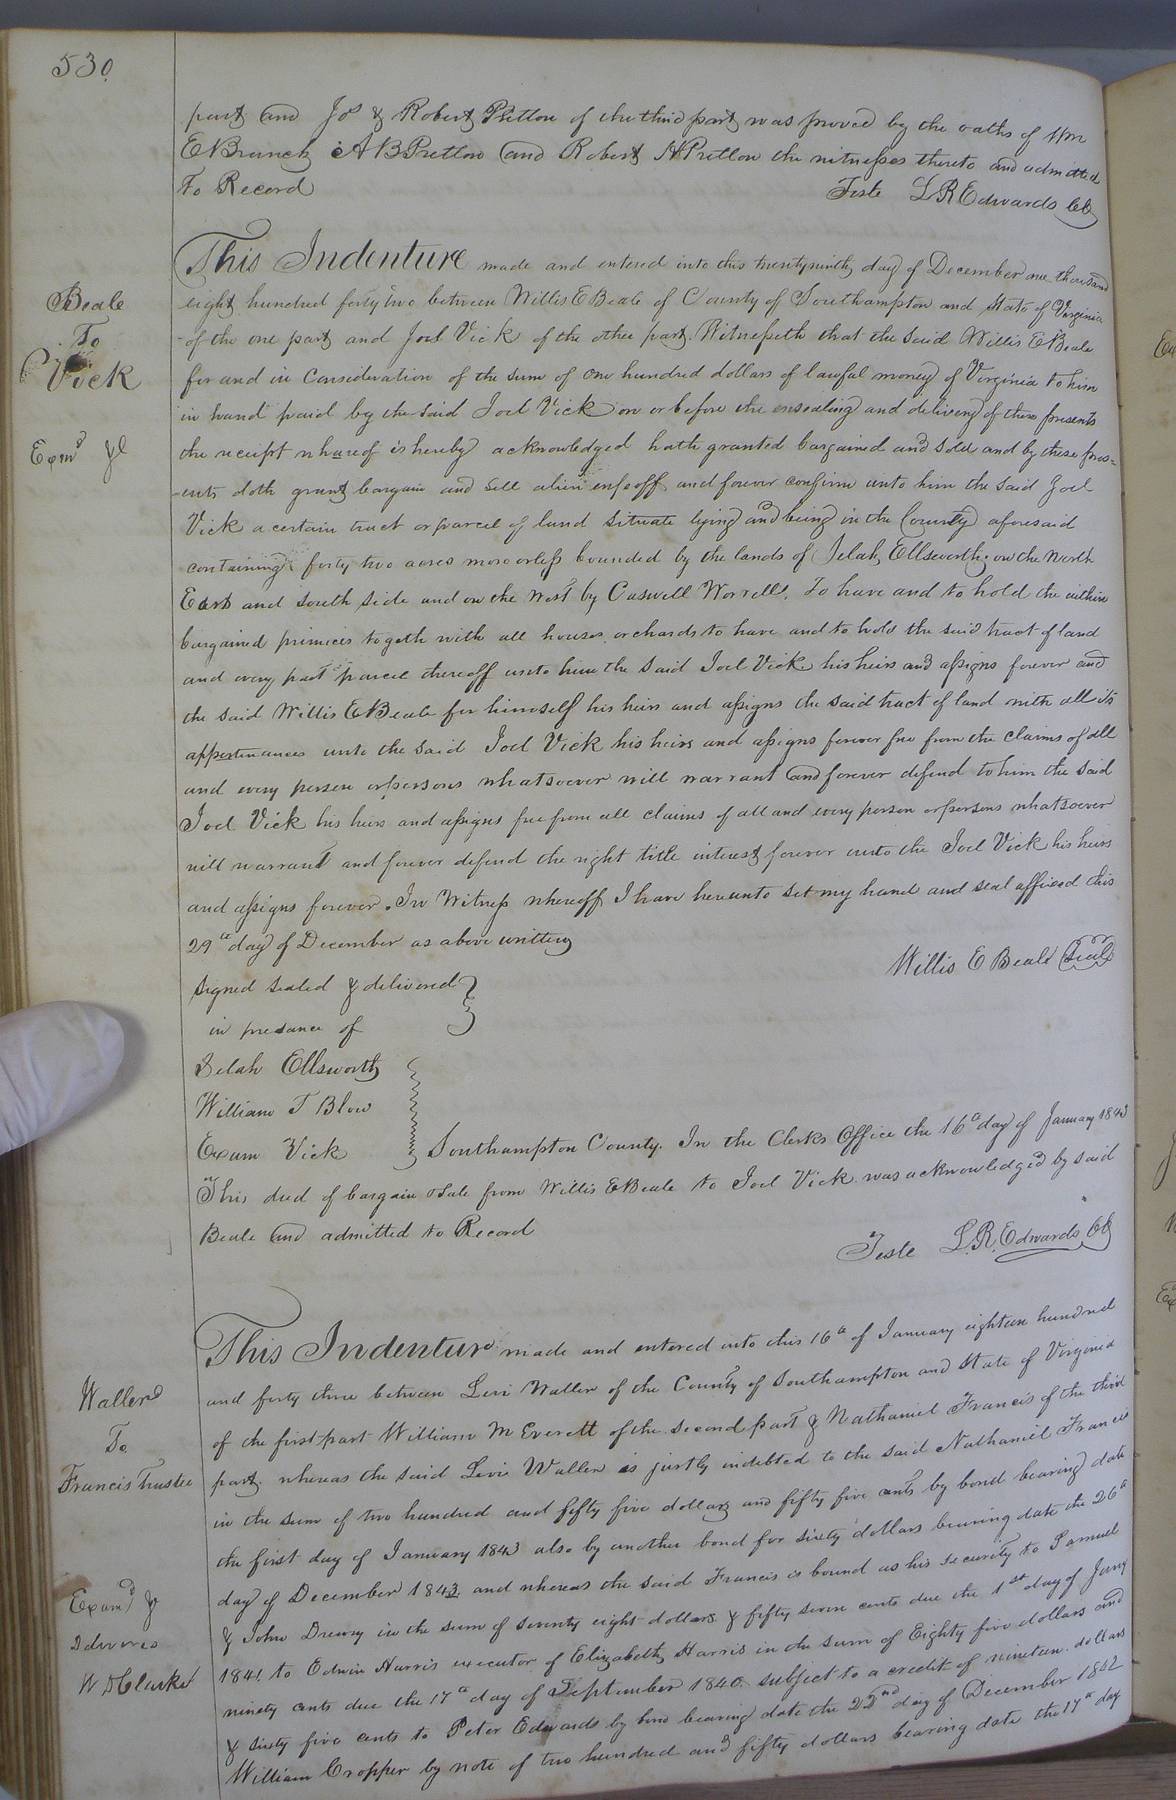 530.
part and Jos & Robert Pretlow of the third part was proved by the oaths of Wm
E Branch A B Pretlow and Robert A Pretlow the witnesses thereto and admitted
To Record
Teste L R Edwards CC
Beale
To
Vick
Examd
This Indenture made and entered into this twentyninth day of December one thousand
eight hundred forty two between Willis E Beale of County of Southampton and State of Virginia
of the one part and Joel Vick of the other part Witnesseth that the said Willis E Beale
for and in consideration of the sum of one hundred dollars of lawful money of Virginia to him
in hand paid by the said Joel Vick on or before the ensealing and delivery of these presents
the receipt whareof is hereby acknowledged hath granted bargained and sold and by these pres=
-ents doth grant bargain and sell alien enfeoff and forever confirm unto him the said Joel
Vick a certain tract or parcel of land situate lying and being in the County aforesaid
containing forty two acres more or less bounded by the lands of Jelah Ellsworth on the North
East and South side and on the West by Caswell Worrell. To have and to hold the within
bargained primices togeth with all houses orchards to have and to hold the said tract of land
and every part parcel thereoff unto him the said Joel Vick his heirs and assigns forever and
the said Willis E Beale for himself his heirs and assigns the said tract of land with all its
appertinances unto the said Joel Vick his heirs and assigns forever free from the claims of all
and every person or persons whatsoever will warrant and forever defend to him the said
Joel Vick his heirs and assigns free from all claims of all and every person or persons whatsoever
will warrant and forever defend the right title interest forever unto the Joel Vick his heirs
and assigns forever. In Witness whereoff I have hereunto set my hand and seal affixed this
29th day of December as above written
Willis E Beale Seal
Signed sealed & delivered
in presance of
Jelah Ellsworth
William T Blow
Exum Vick
Southampton County. In the Clerks Office the 16th day of January 1843
This deed of bargain & sale from Willis E Beale to Joel Vick was acknowledged by said
Beale and admitted to Record
Teste L.R. Edwards CC
Waller
To
Francis Trustee
Examd &
W D Clarke
This Indenture made and entered into this 16th of January eighteen hundred
and forty three between Levi Waller of the County of Southampton and State of Virginia
of the first part William M Everett of the second part & Nathaniel Francis of the third
part, whereas the said Levi Waller is justly indebted to the said Nathaniel Francis
in the sum of two hundred and fifty five dollars and fifty five cents by bond bearing date
the first day of January 1843 also by another bond for sixty dollars bearing date the 26th
day of December 1843 and whereas the said Francis is bound as his security to Samuel
& John Drewry in the sum of seventy eight dollars & fifty seven cents due the 1st day of Jany
1841 to Edwin Harris executor of Elizabeth Harris in the sum of Eighty five dollars and
ninety cents due the 17th day of September 1840 subject to a credit of nineteen dollars
& sixty five cents to Peter Edwards by bond bearing date the 22nd day of December 1842
William Cropper by note of two hundred and fifty dollars bearing date the 17th day